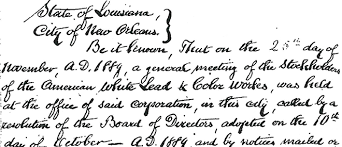 State of Louisiana, }
City of New Orleans. }
Be it known, That on the 25th day of
November, A.D. 1889, a general meeting of the Stockholders
of the American White Lead & Color Works, was held
at the office of said corporation, in this city, called by a
resolution of the Board of Directors, adopted on the 10th
day of October — A.D. 1889 and by notices mailed or